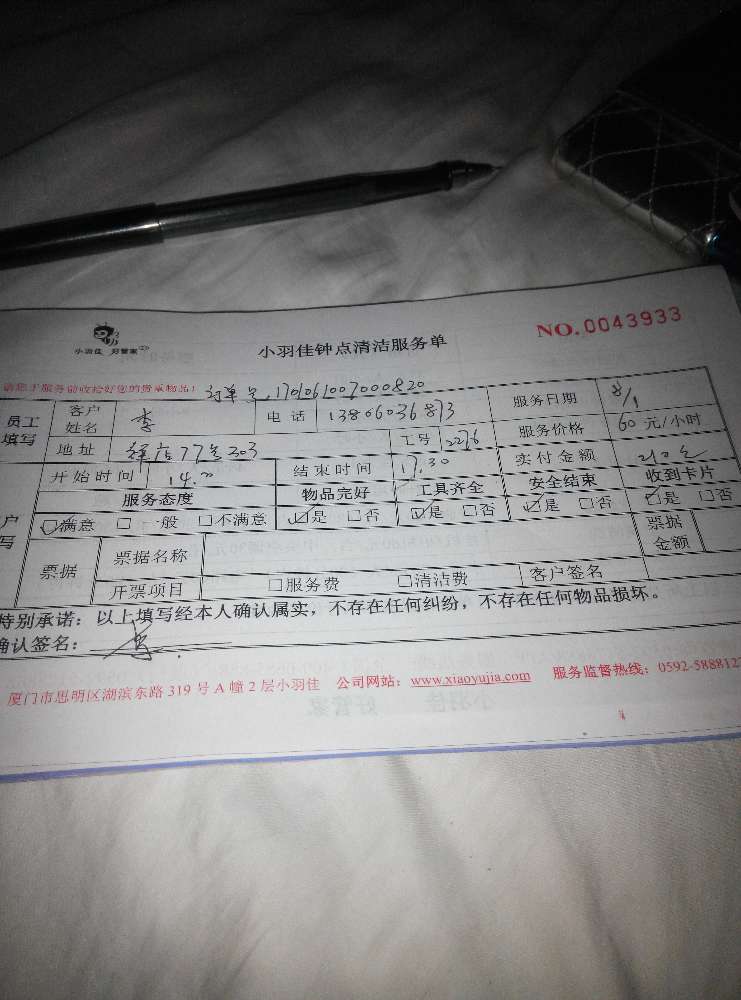 小羽佳 好管家
小羽佳钟点清洁服务单
NO.0043933
请您于服务前收拾好您的贵重物品!
订单号
员工填写
客户姓名 李 电话 13806036873 服务日期 8/1
地址 77 303 工号 2276 服务价格 60元/小时
开始时间 14.00 结束时间 17.30 实付金额 210元
服务态度 物品完好 工具齐全 安全结束 收到卡片
☑满意 □一般 □不满意 ☑是 □否 ☑是 □否 ☑是 □否 ☑是 □否
户
写
票据 票据名称 票据金额
开票项目 □服务费 □清洁费 客户签名
特别承诺:以上填写经本人确认属实,不存在任何纠纷,不存在任何物品损坏。
确认签名:
厦门市思明区湖滨东路 319 号 A 幢 2 层小羽佳 公司网站:www.xiaoyujia.com 服务监督热线:0592-588812